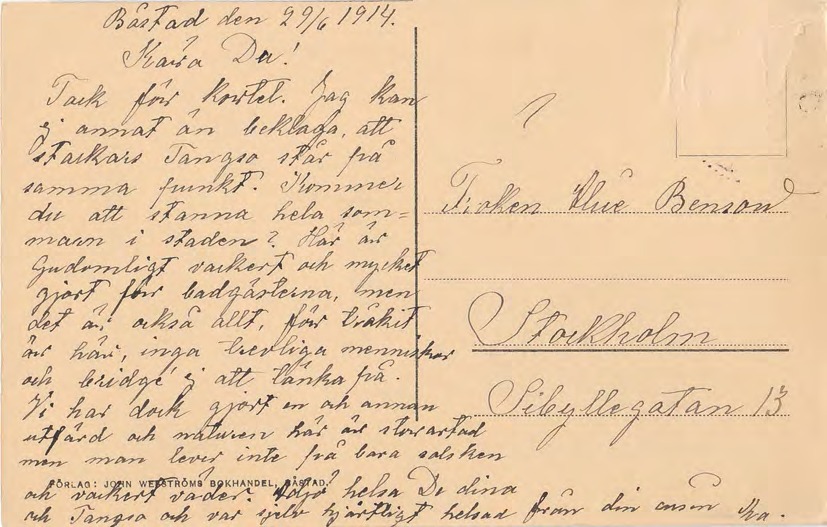 Båstad den 29/6 1914.
Kära Du!
Tack för kortet. Jag kan
ej annat än beklaga, att
stackars Tangso står på
samma punkt. Kommer
du att stanna hela som=
marn i staden? Här är
gudomligt vackert och mycket
gjort för badgästerna, men
det är också allt, för tråkit
är här, inga trevliga menniskor
och bridge ej att tänka på.
Vi har dock gjort en och annan
utfärd och naturen här är storartad
men man lever inte på bara solsken
och vackert väder. Adjö helsa De dina
och Tangso och var sjelv hjärtligt helsad från din
FÖRLAG: JOHN WESTRÖMS BOKHANDEL, BÅSTAD.
Fröken Benson
Stockholm
Sibyllegatan 13